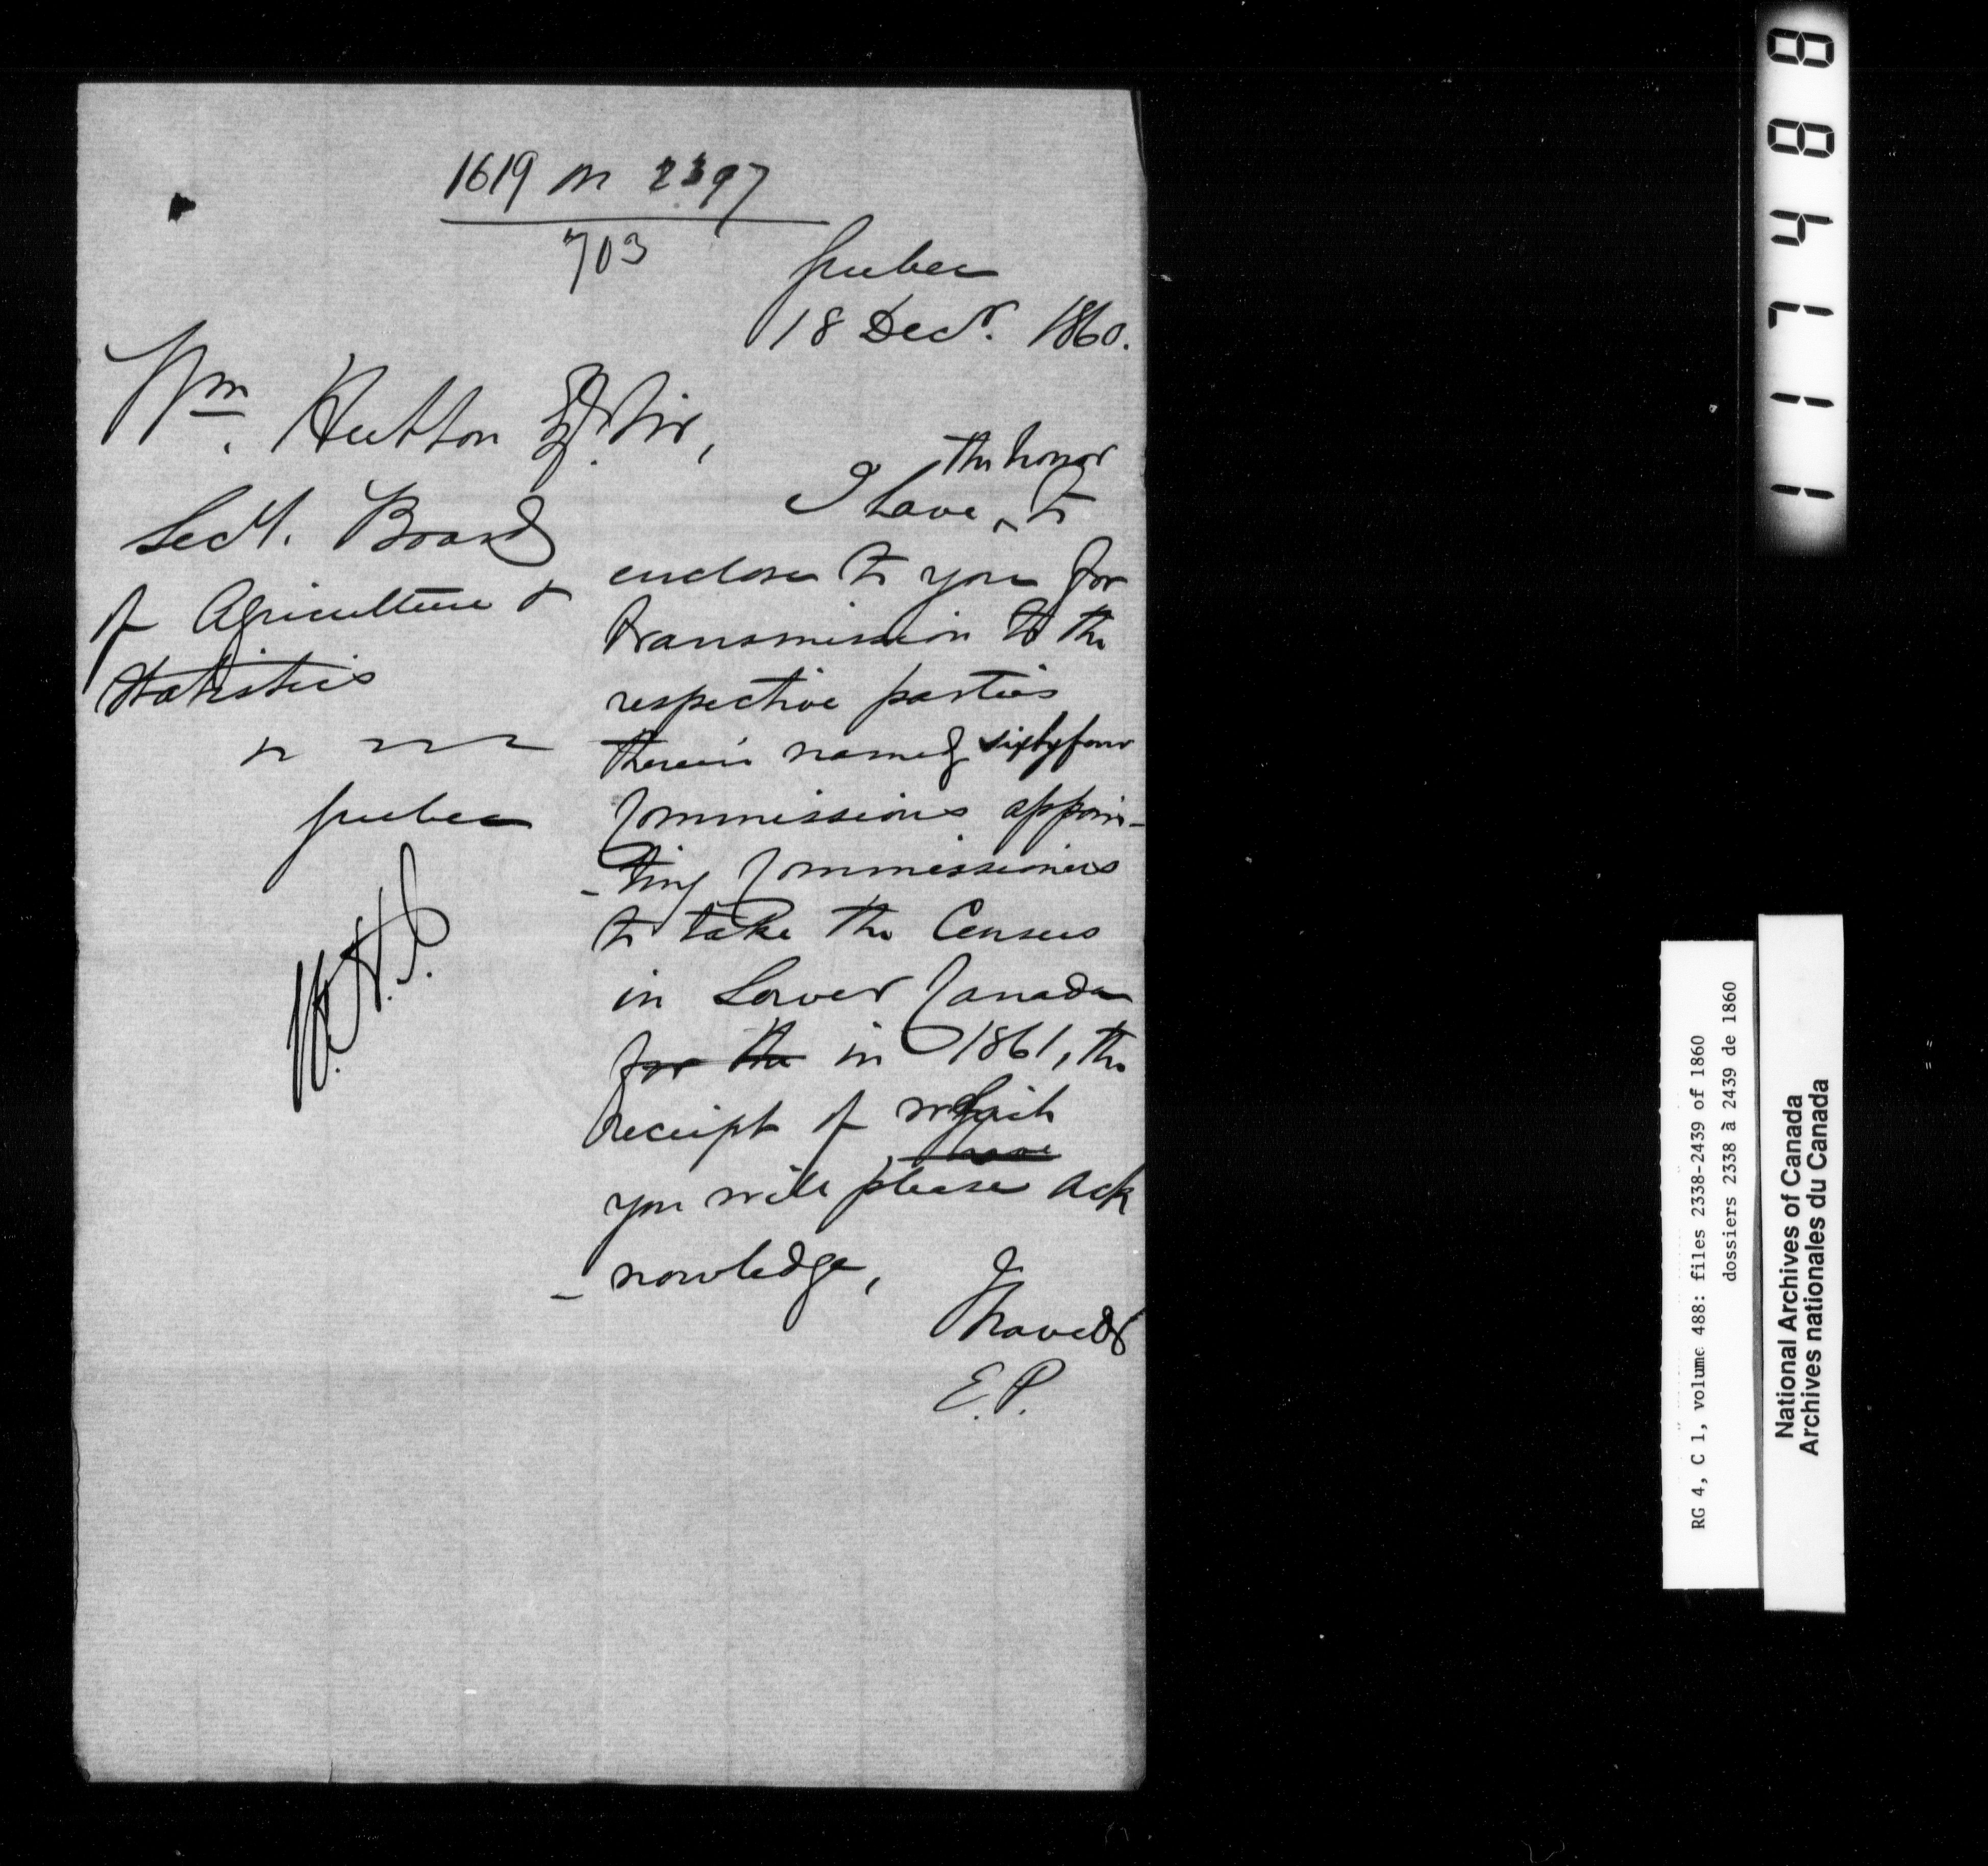 1619 on 2397
703
Quebec
18 Decr. 1860.
Wm. Hutton Esqr
Secy. Board
of Agriculture &
Statistics
Quebec
Sir,
the honor
I have ^ to
enclose to you for
transmission to the
respective parties
therein named sixtyfour
Commissions appoin-
-ting Commissioners
to take the Census
in Lower Canada
for the in 1861, the
receipt of which
have
you will please ack
-nowledge,
I
have &
E.P.
1174888
RG 4, C 1, volume 488: files 2338-2439 of 1860
dossiers 2338 à 2439 de 1860
National Archives of Canada
Archives nationales du Canada